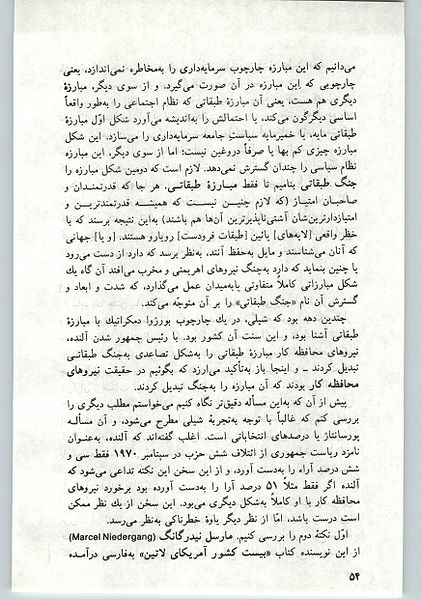 می‌دانیم که این مبارزه چارچوب سرمایه‌داری را به‌مخاطره نمی‌اندازد، یعنی
چارچوبی که این مبارزه در آن صورت می‌گیرد. و از سوی دیگر، مبارزهٔ
دیگری هم هست، یعنی آن مبارزهٔ طبقاتی که نظام اجتماعی را به‌طور واقعاً
اساسی دیگرگون می‌کند، یا احتمالش را به‌اندیشه می‌آورد شکل اوّل مبارزهٔ
طبقاتی مایه، یا خمیرمایه سیاستِ جامعه سرمایه‌داری را می‌سازد. این شکل
مبارزه چیزی کم بها یا صرفاً دروغین نیست؛ اما از سوی دیگر، این مبارزه
نظام سیاسی را چندان گسترش نمی‌دهد. لازم است که دومین شکل مبارزه را
جنگ طبقاتی بنامیم تا فقط مبـارزهٔ طبقاتـی. هر جا که قدرتمنـدان و
صاحبـان امتیـاز (که لازم چنیـن نیسـت که همیشـه قدرتمندتریـن و
امتیازدارترین‌شان آشتی‌ناپذیرترین آن‌ها هم باشند) به‌این نتیجه برسند که با
خطر واقعی [لایه‌های] پائین [طبقات فرودست] رویارو هستند، [و یا] جهانی
که آنان می‌شناسند و مایل به‌حفظ آنند، به‌نظر برسد که دارد از دست می‌رود
یا چنین بنماید که دارد به‌چنگ نیروهای اهریمنی و مخرب می‌افتد آن گاه یك
شکل مبارزاتی کاملاً متفاوتی پابه‌میدان عمل می‌گذارد، که شدت و ابعاد و
گسترش آن نام «جنگ طبقاتی» را بر آن متوجّه می‌کند.
چندین دهه بود که شیلی، در یك چارچوب بورژوا دمکراتیك با مبارزهٔ
طبقاتی آشنا بود، و این سنت آن کشور بود. با رئیس جمهور شدن آلنده،
نیروهای محافظه کار مبارزهٔ طبقاتی را به‌شکل تصاعدی به‌جنگ طبقاتـی
تبدیل کردند ـ و اینجا باز به‌تأکید می‌ارزد که بگوئیم در حقیقت نیروهای
محافظه کار بودند که آن مبارزه را به‌جنگ تبدیل کردند.
پیش از آن که به‌این مسأله دقیق‌تر نگاه کنیم می‌خواستم مطلب دیگری را
بررسی کنم که غالباً با توجه به‌تجربهٔ شیلی مطرح می‌شود، و آن مسألـه
پورسانتاژ یا درصدهای انتخاباتی است. اغلب گفته‌اند که آلنده، به‌عنـوان
نامزد ریاست جمهوری از ائتلاف شش حزب در سپتامبر ۱۹۷۰ فقط سی و
شش درصد آراء را به‌دست آورد، و از این سخن این نکته تداعی می‌شود که
آلنده اگر فقط مثلاً ۵۱ درصد آرا را به‌دست آورده بود برخورد نیروهای
محافظه کار با او کاملاً به‌شکل دیگری می‌بود. این سخن از یك نظر ممکن
است درست باشد، امّا از نظر دیگر یاوهٔ خطرناکی به‌نظر می‌رسد.
اوّل نکتهٔ دوم را بررسی کنیم. مارسل نیدرگانگ (Marcel Niedergang)
از این نویسنده کتاب «بیست کشور آمریکای لاتین» به‌فارسی درآمـده
۵۴